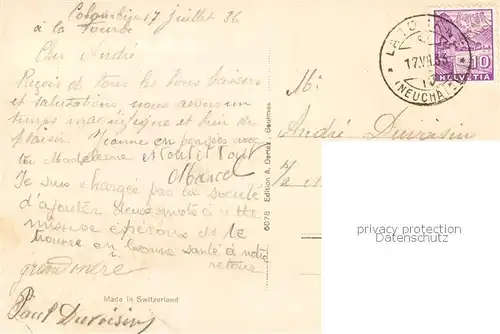 Colombier 17 juillet 36
à la Tourbe
Cher André
Reçois de tous les bons baisers
et salutations nous avons un
temps magnifique et bien du
plaisir. Jeanne en pensées avec
toi Madeleine
Marcel
Je suis chargée par la société
d'ajouter deux mots à cette
missive espérons de te
trouver en bonne santé à notre
retour
grand'mère
Paul Duvoisin
Made in Switzerland
6078 Edition A. Deriaz, Baulmes
17.VII.
(NEUCHA
10
HELVETIA
Mr.
André Duvoisin
privacy protection
Datenschutz